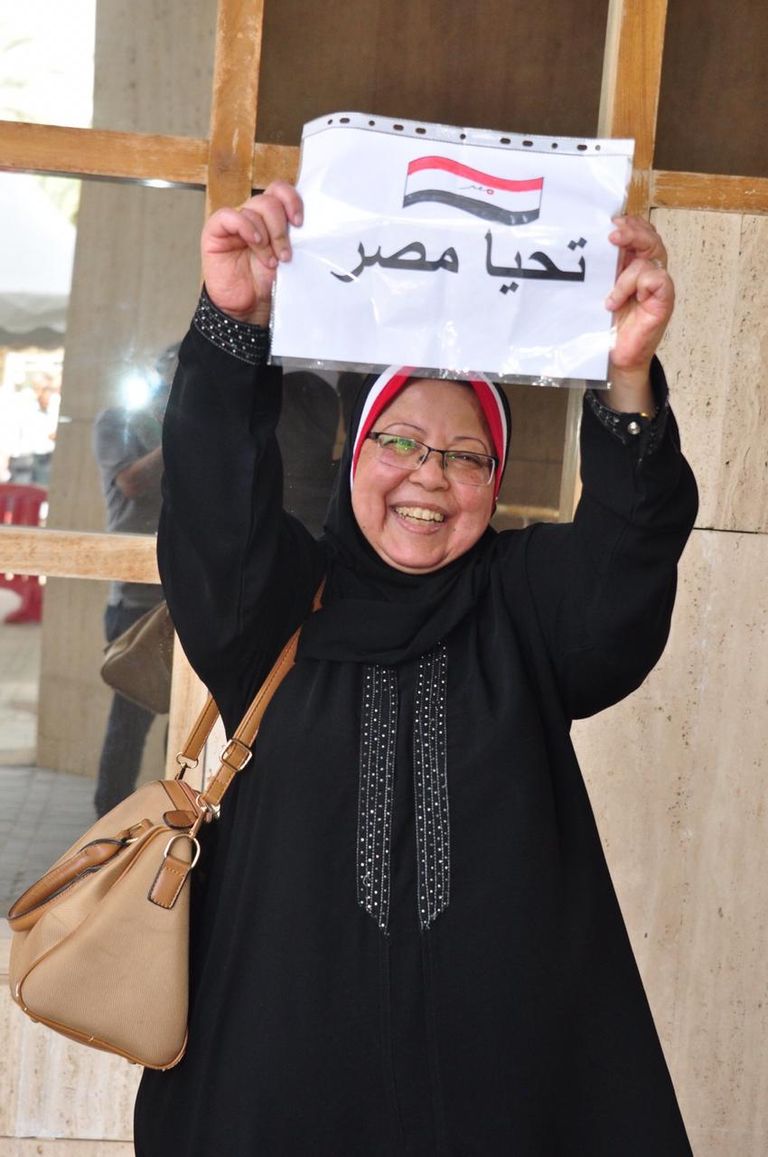 مصر
تحيا مصر